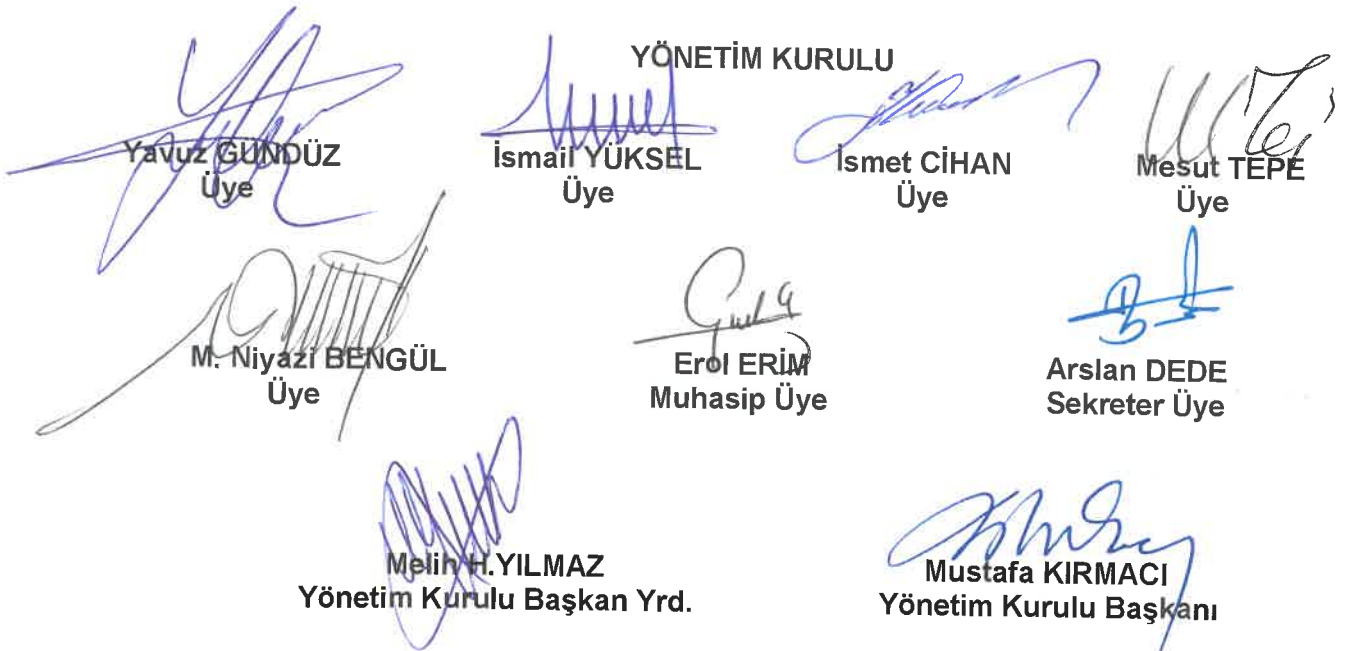 YÖNETİM KURULU
Yavuz GÜNDÜZ
Üye
İsmail YÜKSEL
Üye
İsmet CİHAN
Üye
Mesut TEPE
Üye
M. Niyazi BENGÜL
Üye
Erol ERİM
Muhasip Üye
Arslan DEDE
Sekreter Üye
Melih H.YILMAZ
Yönetim Kurulu Başkan Yrd.
Mustafa KIRMACI
Yönetim Kurulu Başkanı